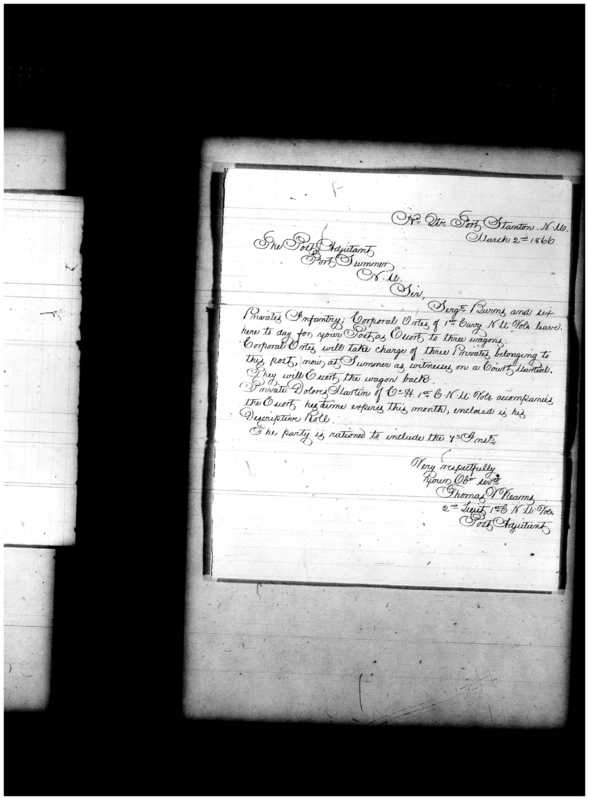 Hd Qrs Fort Stanton N.M.
March 2nd 1866
The Post Adjutant
Fort Sumner
N. M.
Sir,
Sergt Burns and six
Privates Infantry, Corporal Ortes of 1st Cavy N M Vols leave
here to day for your Post as Escort to three wagons.
Corporal Ortes will take charge of three Privates belonging to
this post, now at Sumner as witnesses on a Court Martial.
They will Escort the wagon back.
Private Dolores Martin of Co H. 1st C N M Vols accompanies
the Escort, his time expires this month, enclosed is his
Descriptive Roll.
The party is rationed to include the 7th Inst.
Very respectfully
Your Obt servt
Thomas V Kearns
2nd Lieut 1st C N M Vols
Post Adjutant